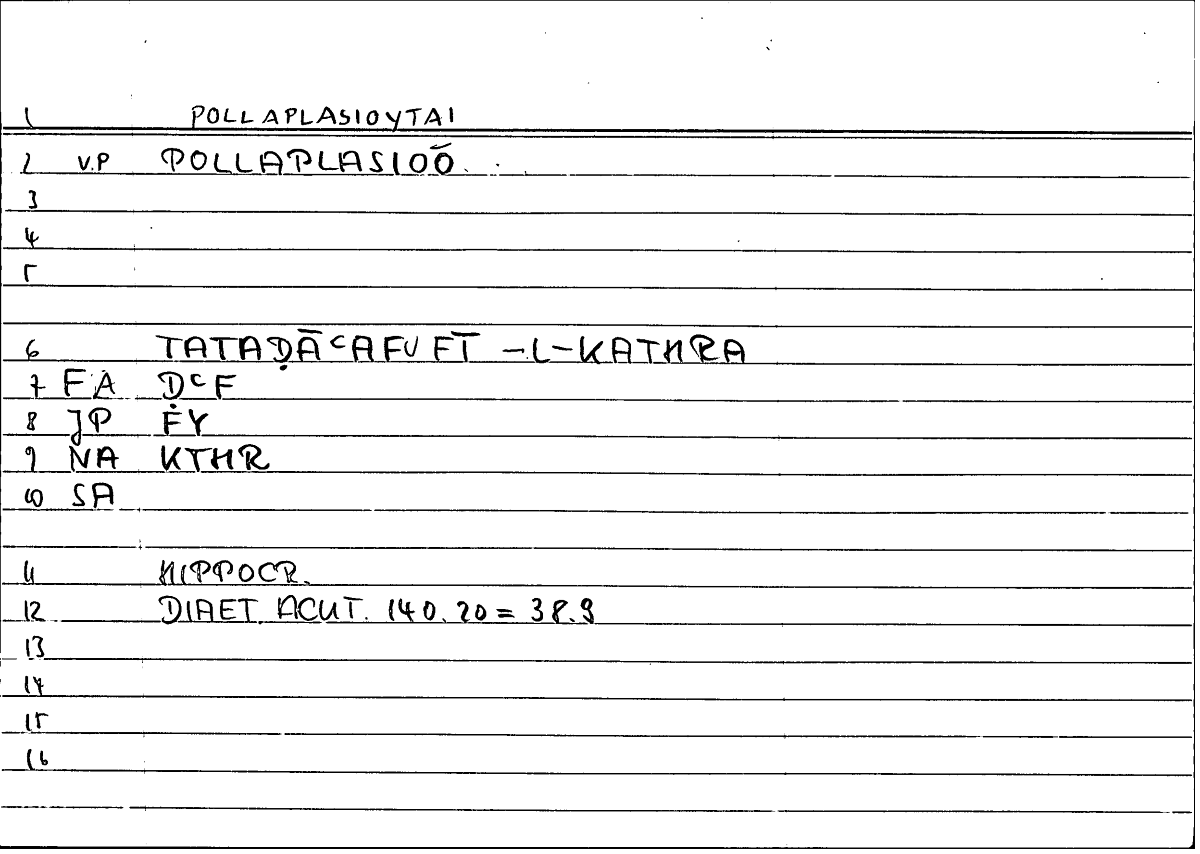 1 POLLAPLASIOYTAI
2 V.P POLLAPLASIOŌ.
3
4
5
6 TATAḌĀᶜAFU FĪ -L-KATHRA
7 FA ḌᶜF
8 JP FY
9 NA KTHR
10 SA
11 HIPPOCR.
12 DIAET. ACUT. 140.20 = 38.9
13
14
15
16